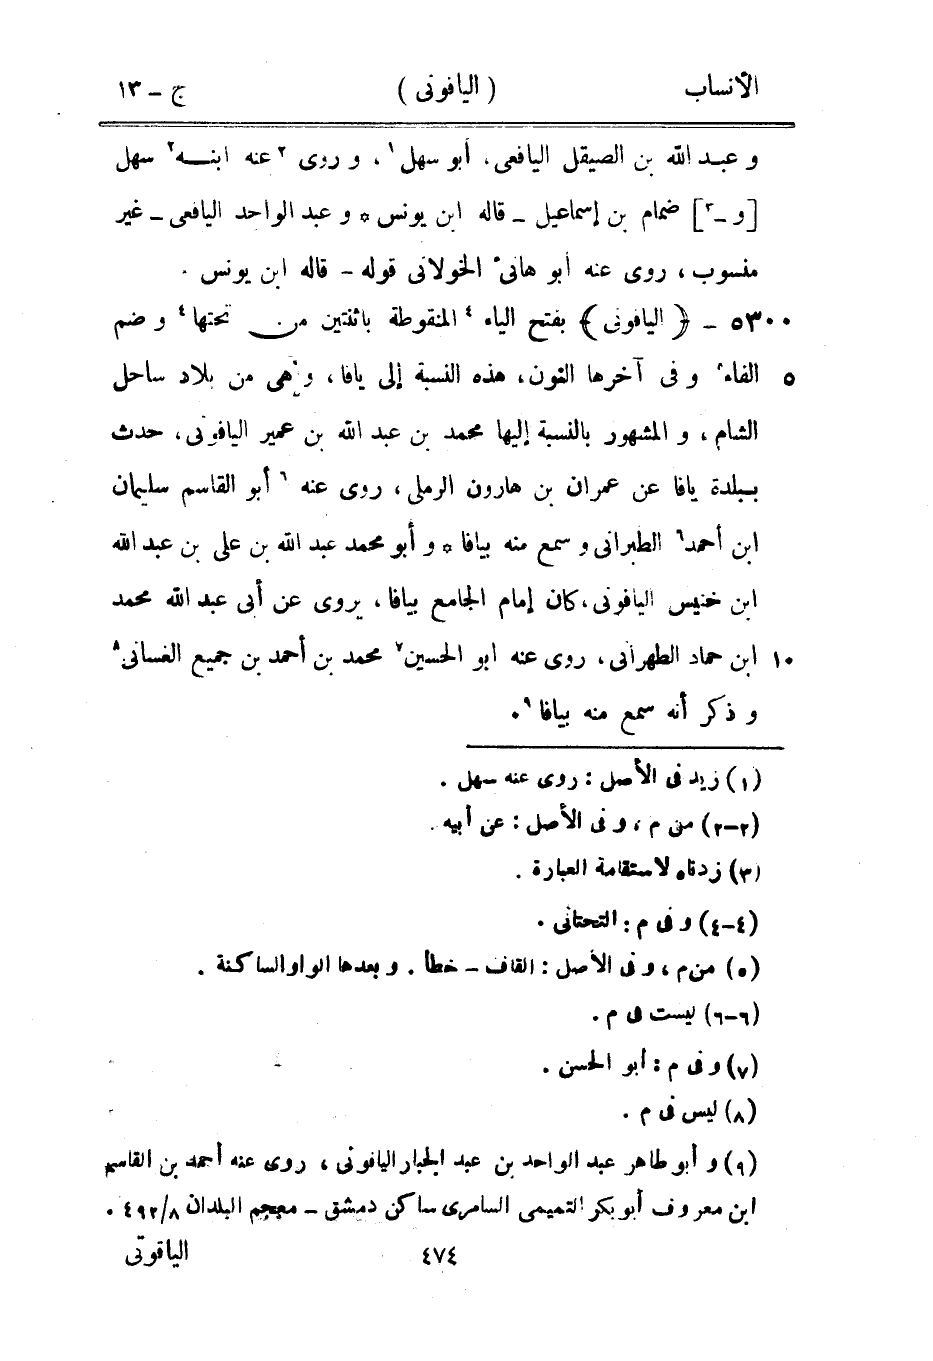 الأنساب ( اليافونى ) ج – ١٣
و عبد الله بن الصيقل اليافعى، أبو سهل ١، و روى ٢ عنه ابنه ٢ سهل
[و –٣] ضمام بن إسماعيل – قاله ابن يونس * و عبد الواحد اليافعى – غير
منسوب، روى عنه أبو هانئ الخولانى قوله – قاله ابن يونس .
٥٣٠٠ – ﴿ اليافونى ﴾ بفتح الياء ٤ المنقوطة باثنتين من تحتها ٤ و ضم
٥ الفاء ٥ و فى آخرها النون، هذه النسبة إلى يافا، و هى من بلاد ساحل
الشام، و المشهور بالنسبة إليها محمد بن عبد الله بن عمير اليافونى، حدث
ببلدة يافا عن عمران بن هارون الرملى، روى عنه ٦ أبو القاسم سليمان
ابن أحمد ٦ الطبرانى و سمع منه بيافا * و أبو محمد عبد الله بن على بن عبد الله
ابن خنيس اليافونى، كان إمام الجامع بيافا، يروى عن أبى عبد الله محمد
١٠ ابن حماد الطهرانى، روى عنه ابو الحسين ٧ محمد بن أحمد بن جميع الغسانى ٨
و ذكر أنه سمع منه بيافا ٩.
(١) زيد فى الأصل : روى عنه سهل .
(٢–٢) من م، و فى الأصل : عن أبيه .
(٣) زدناه لاستقامة العبارة .
(٤–٤) و فى م : التحتانى .
(٥) من م، و فى الأصل : القاف – خطأ . و بعدها الواو الساكنة .
(٦–٦) ليست فى م .
(٧) و فى م : أبو الحسن .
(٨) ليس فى م .
(٩) و أبو طاهر عبد الواحد بن عبد الجبار اليافونى، روى عنه أحمد بن القاسم
ابن معروف أبو بكر التميمى السامرى ساكن دمشق – معجم البلدان ٨/ ٤٩٢ .
٤٧٤ الياقوتى